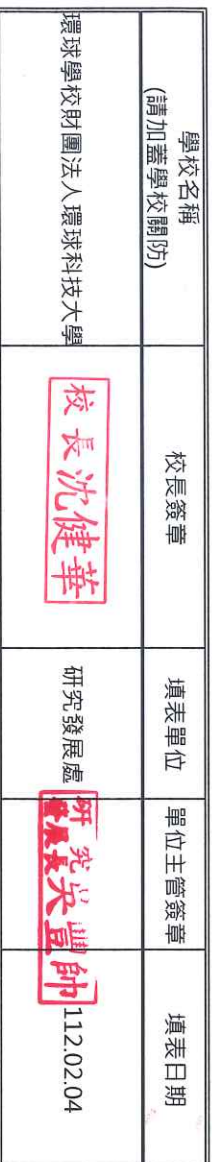 學校名稱
(請加蓋學校關防)
校長簽章
填表單位
單位主管簽章
填表日期
環球學校財團法人環球科技大學
校長沈健華
研究發展處
研究
發展長吳豐帥
112.02.04